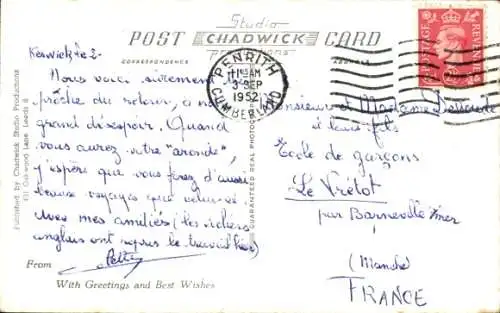 Studio
POST CHADWICK CARD
productions
CORRESPONDENCE
ADDRESS
PENRITH
11 AM
3 SEP
1952
CUMBERLAND
POSTAGE
REVENUE
Keswick le 2-
Nous voici sûrement
proche du retour, à n
grand désespoir. Quand
vous aurez votre "aronde",
j'espère que vous ferez d'aussi
beaux voyages que celui-ci
Avec mes amitiés (les écoliers
anglais ont repris le travail hier)
From
With Greetings and Best Wishes
Monsieur et Madame
et leurs fils
Ecole de garçons
Le Vrétot
par Barneville s/mer
(Manche)
FRANCE
Published by Chadwick Studio Productions
Oakwood Lane Leeds 8
GUARANTEED REAL PHOTOGRAPH